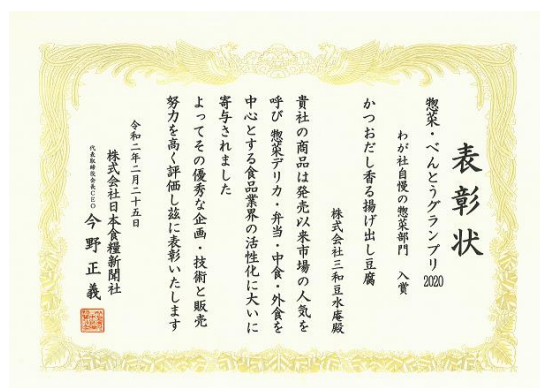 表彰状
惣菜・べんとうグランプリ2020
わが社自慢の惣菜部門 入賞
かつおだし香る揚げ出し豆腐
株式会社三和豆水庵殿
貴社の商品は発売以来市場の人気を
呼び 惣菜デリカ・弁当・中食・外食を
中心とする食品業界の活性化に大いに
寄与されました
よってその優秀な企画・技術と販売
努力を高く評価し茲に表彰いたします
令和二年二月二十五日
株式会社日本食糧新聞社
代表取締役会長CEO 今野正義